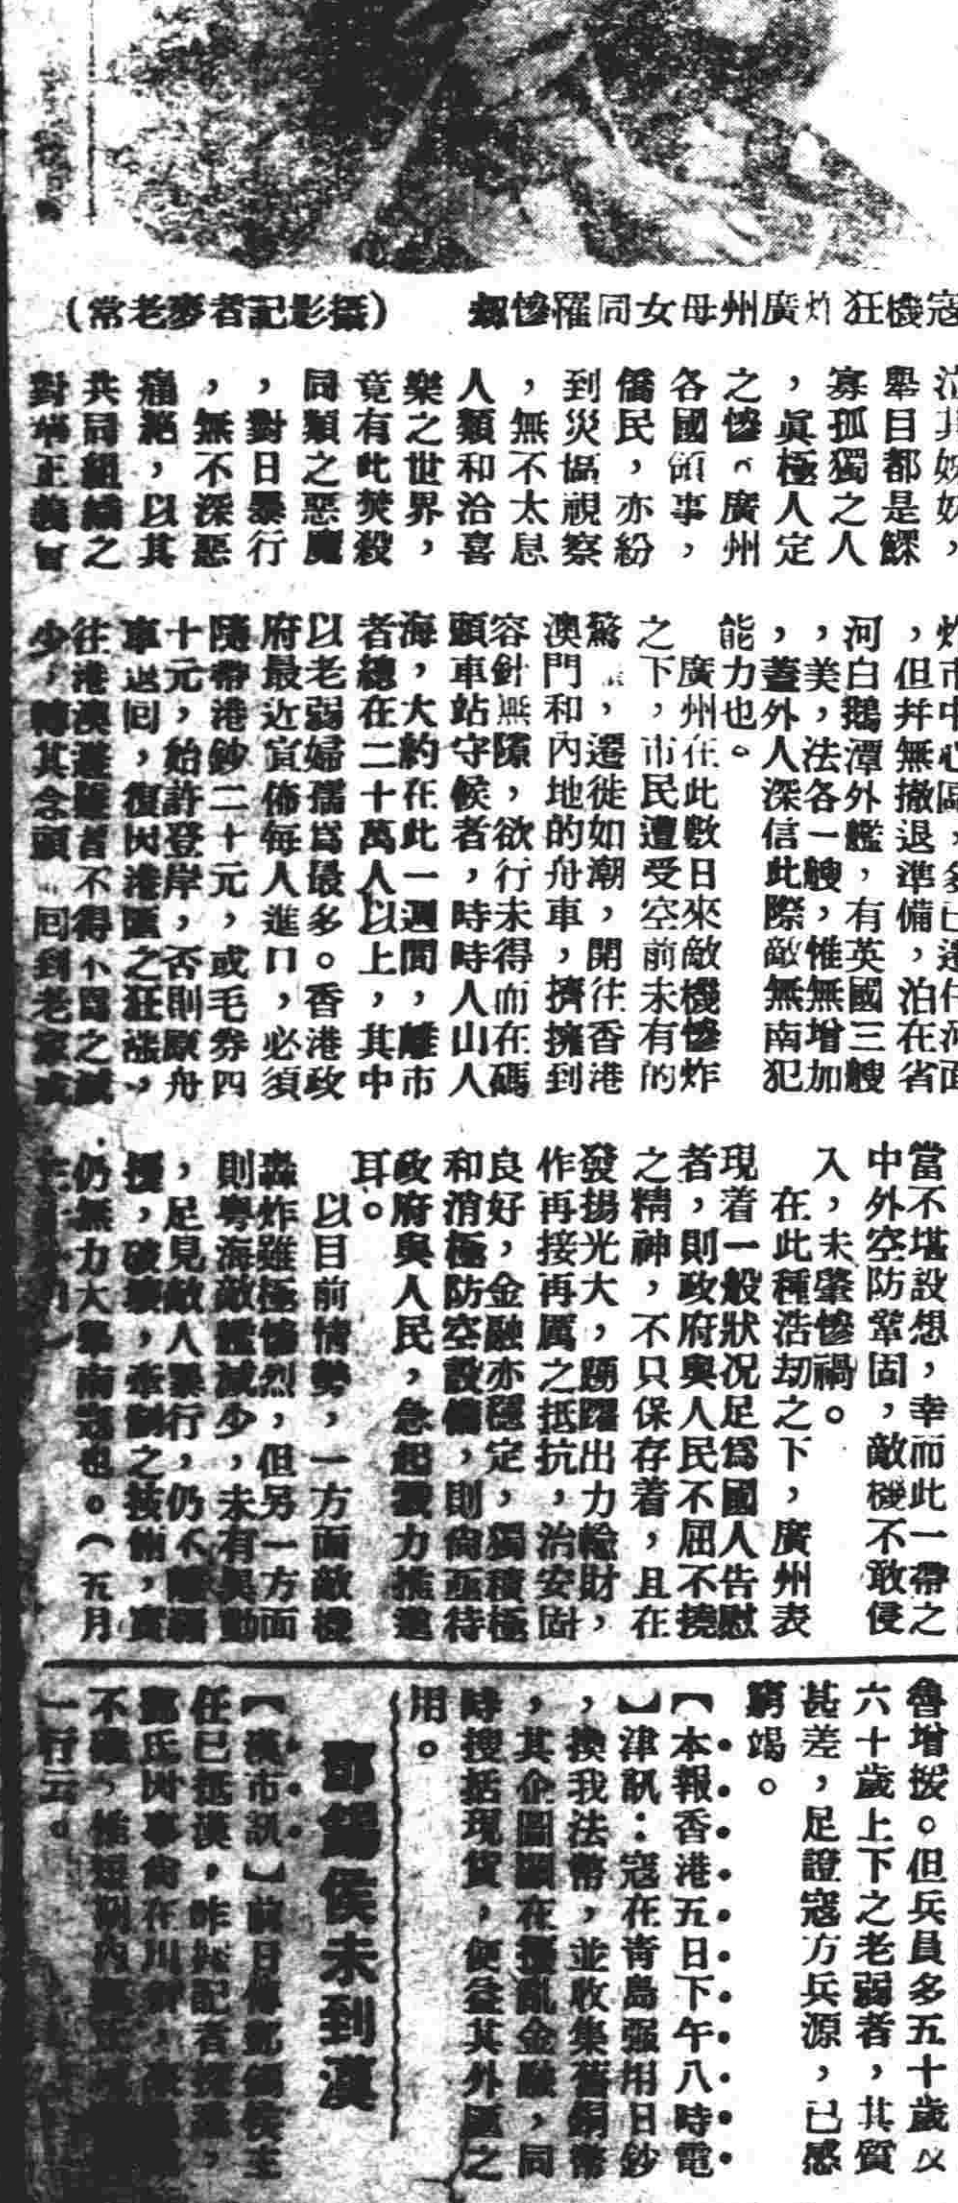 寇機狂炸廣州母女同罹慘劫　（攝影記者麥老常）
舉目都是鰥
寡孤獨之人
，眞極人定
之慘。廣州
各國領事，
僑民，亦紛
到災區視察
，無不太息
人類和洽喜
樂之世界，
竟有此焚殺
同類之惡魔
，對日暴行
，無不深惡
痛絕，以其
共同組織之
對
炸市中心區，多已遷
，但幷無撤退準備，泊在省
河白鵝潭外艦，有英國三艘
，美，法各一艘，惟無增加
，蓋外人深信此際敵無南犯
能力也。
廣州在此數日來敵機慘炸
之下，市民遭受空前未有的
驚，遷徙如潮，開往香港
澳門和內地的舟車，擠擁到
容針無隙，欲行未得而在碼
頭車站守候者，時時人山人
海，大約在此一週間，離市
者總在二十萬人以上，其中
以老弱婦孺爲最多。香港政
府最近宣佈每人進口，必須
隨帶港鈔二十元，或毛券四
十元，始許登岸，否則原舟
車返囘，復因港匯之狂漲，
往港澳避難者不得不爲之減
少，轉其念頭，囘到老家
當不堪設想，幸而此一帶之
中外空防鞏固，敵機不敢侵
入，未肇慘禍。
在此種浩劫之下，廣州表
現着一般狀况足爲國人告慰
者，則政府與人民不屈不撓
之精神，不只保存着，且在
發揚光大，踴躍出力輸財，
作再接再厲之抵抗，治安固
良好，金融亦穩定，獨積極
和消極防空設備，則尙亟待
政府與人民，急起羣力推進
耳。
以目前情勢，一方面敵機
轟炸雖極慘烈，但另一方面
則粵海敵艦減少，未有異動
，足見敵人暴行，仍不離擾
擾，破壞，牽制之技倆，實
仍無力大舉南寇也。（五月
魯增援。但兵員多五十歲以
六十歲上下之老弱者，其質
甚差，足證寇方兵源，已感
窮竭。
【本報香港五日下午八時電
】津訊：寇在靑島强用日鈔
，換我法幣，並收集舊銅幣
，其企圖顯在擾亂金融，同
時搜括現貨，便益其外匯之
用。
鄧錫侯未到漢
【漢市訊】前日傳鄧錫侯主
任已抵漢，昨據記者
鄧氏因事尙在川
不
行云。